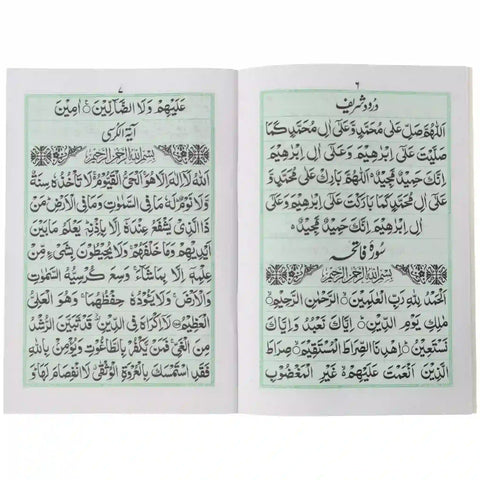 ٦
درود شریف
اَللّٰهُمَّ صَلِّ عَلٰى مُحَمَّدٍ وَّعَلٰٓى اٰلِ مُحَمَّدٍ كَمَا
صَلَّيْتَ عَلٰٓى اِبْرٰهِيْمَ وَعَلٰٓى اٰلِ اِبْرٰهِيْمَ
اِنَّكَ حَمِيْدٌ مَّجِيْدٌ اَللّٰهُمَّ بَارِكْ عَلٰى مُحَمَّدٍ وَّعَلٰٓى
اٰلِ مُحَمَّدٍ كَمَا بَارَكْتَ عَلٰٓى اِبْرٰهِيْمَ وَعَلٰٓى
اٰلِ اِبْرٰهِيْمَ اِنَّكَ حَمِيْدٌ مَّجِيْدٌ
سورۃ فاتحہ
بِسْمِ اللّٰهِ الرَّحْمٰنِ الرَّحِيْمِ
اَلْحَمْدُ لِلّٰهِ رَبِّ الْعٰلَمِيْنَ الرَّحْمٰنِ الرَّحِيْمِ
مٰلِكِ يَوْمِ الدِّيْنِ اِيَّاكَ نَعْبُدُ وَاِيَّاكَ
نَسْتَعِيْنُ اِهْدِنَا الصِّرَاطَ الْمُسْتَقِيْمَ صِرَاطَ
الَّذِيْنَ اَنْعَمْتَ عَلَيْهِمْ غَيْرِ الْمَغْضُوْبِ
٧
عَلَيْهِمْ وَلَا الضَّآلِّيْنَ اٰمِيْنَ
آیۃ الکرسی
بِسْمِ اللّٰهِ الرَّحْمٰنِ الرَّحِيْمِ
اَللّٰهُ لَآ اِلٰهَ اِلَّا هُوَ الْحَىُّ الْقَيُّوْمُ لَا تَاْخُذُهٗ سِنَةٌ
وَّلَا نَوْمٌ لَهٗ مَا فِى السَّمٰوٰتِ وَمَا فِى الْاَرْضِ مَنْ
ذَا الَّذِىْ يَشْفَعُ عِنْدَهٗٓ اِلَّا بِاِذْنِهٖ يَعْلَمُ مَا بَيْنَ
اَيْدِيْهِمْ وَمَا خَلْفَهُمْ وَلَا يُحِيْطُوْنَ بِشَىْءٍ مِّنْ
عِلْمِهٖٓ اِلَّا بِمَا شَآءَ وَسِعَ كُرْسِيُّهُ السَّمٰوٰتِ
وَالْاَرْضَ وَلَا يَئُوْدُهٗ حِفْظُهُمَا وَهُوَ الْعَلِىُّ
الْعَظِيْمُ لَآ اِكْرَاهَ فِى الدِّيْنِ قَدْ تَّبَيَّنَ الرُّشْدُ
مِنَ الْغَىِّ فَمَنْ يَّكْفُرْ بِالطَّاغُوْتِ وَيُؤْمِنْ بِاللّٰهِ
فَقَدِ اسْتَمْسَكَ بِالْعُرْوَةِ الْوُثْقٰى لَا انْفِصَامَ لَهَا وَ